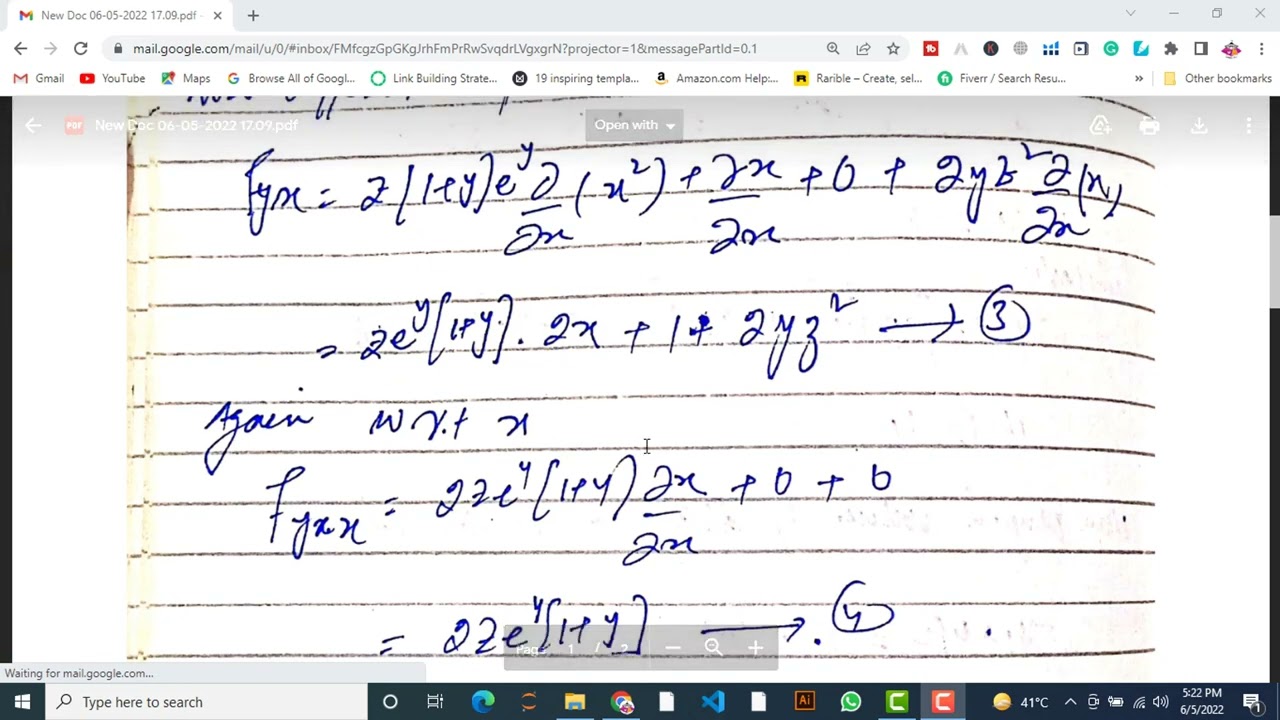 New Doc 06-05-2022 17.09.pdf -
mail.google.com/mail/u/0/#inbox/FMfcgzGpGKgJrhFmPrRwSvqdrLVgxgrN?projector=1&messagePartId=0.1
Gmail YouTube Maps Browse All of Googl... Link Building Strate... 19 inspiring templa... Amazon.com Help:... Rarible – Create, sel... Fiverr / Search Resu... » Other bookmarks
PDF New Doc 06-05-2022 17.09.pdf Open with
fyx = z(1+y)e^y ∂/∂x (x²) + ∂x/∂x + 0 + 2yz² ∂/∂x (x)
= ze^y[1+y] . 2x + 1 + 2yz² → ③
Again w r.t x
fyxx = 2ze^y[1+y) ∂x/∂x + 0 + 0
= 2ze^y[1+y] → . ④
Page 1 / 2
Waiting for mail.google.com...
Type here to search
41°C
5:22 PM
6/5/2022